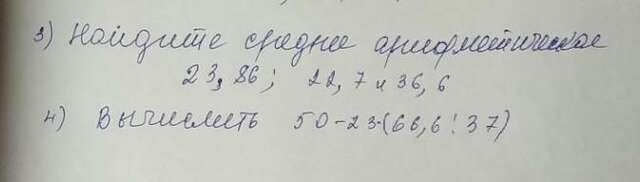 3) Найдите среднее арифметическое
23,86; 22,7 и 36,6
4) Вычислить 50-23·(66,6:37)